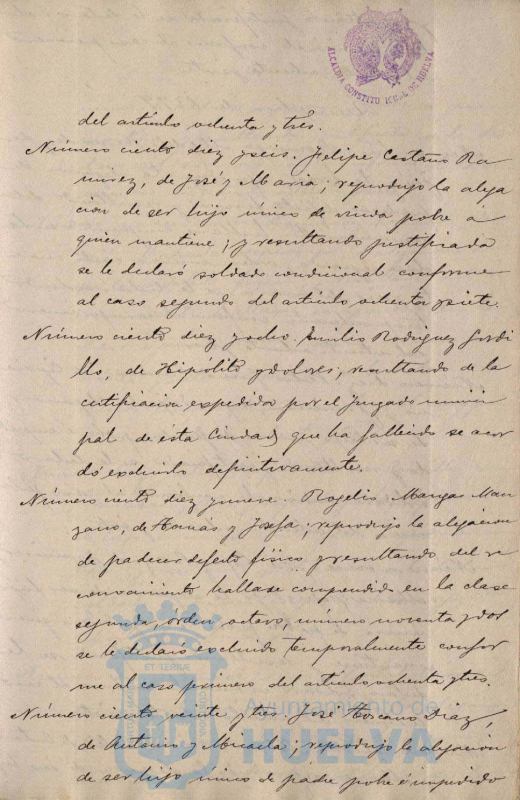 ALCALDIA CONSTITUCIONAL DE HUELVA
del artículo ochenta y tres.
Número ciento diez y seis. Felipe Castaño Ra
mirez, de José y Maria; reprodujo la alega
cion de ser hijo único de viuda pobre a
quien mantiene; y resultando justificada
se le declaró soldado condicional conforme
al caso segundo del artículo ochenta y siete.
Número ciento diez y ocho. Emilio Rodriguez Gordi
llo, de Hipólito y Dolores, resultando de la
certificacion expedida por el Juzgado munici
pal de esta Ciudad, que ha fallecido se acor
dó excluirlo definitivamente.
Número ciento diez y nueve. Rogelio Manga Man
zano, de Tomás y Josefa; reprodujo la alegacion
de padecer defecto físico y resultando del re
conocimiento hallase comprendido en la clase
segunda, órden octavo, número noventa y dos
se le declaró excluido temporalmente confor
me al caso primero del artículo ochenta y tres.
Número ciento veinte y tres. José Toscano Diaz,
de Antonio y Micaela; reprodujo la alegacion
de ser hijo único de padre pobre é impedido
Ayuntamiento de
HUELVA